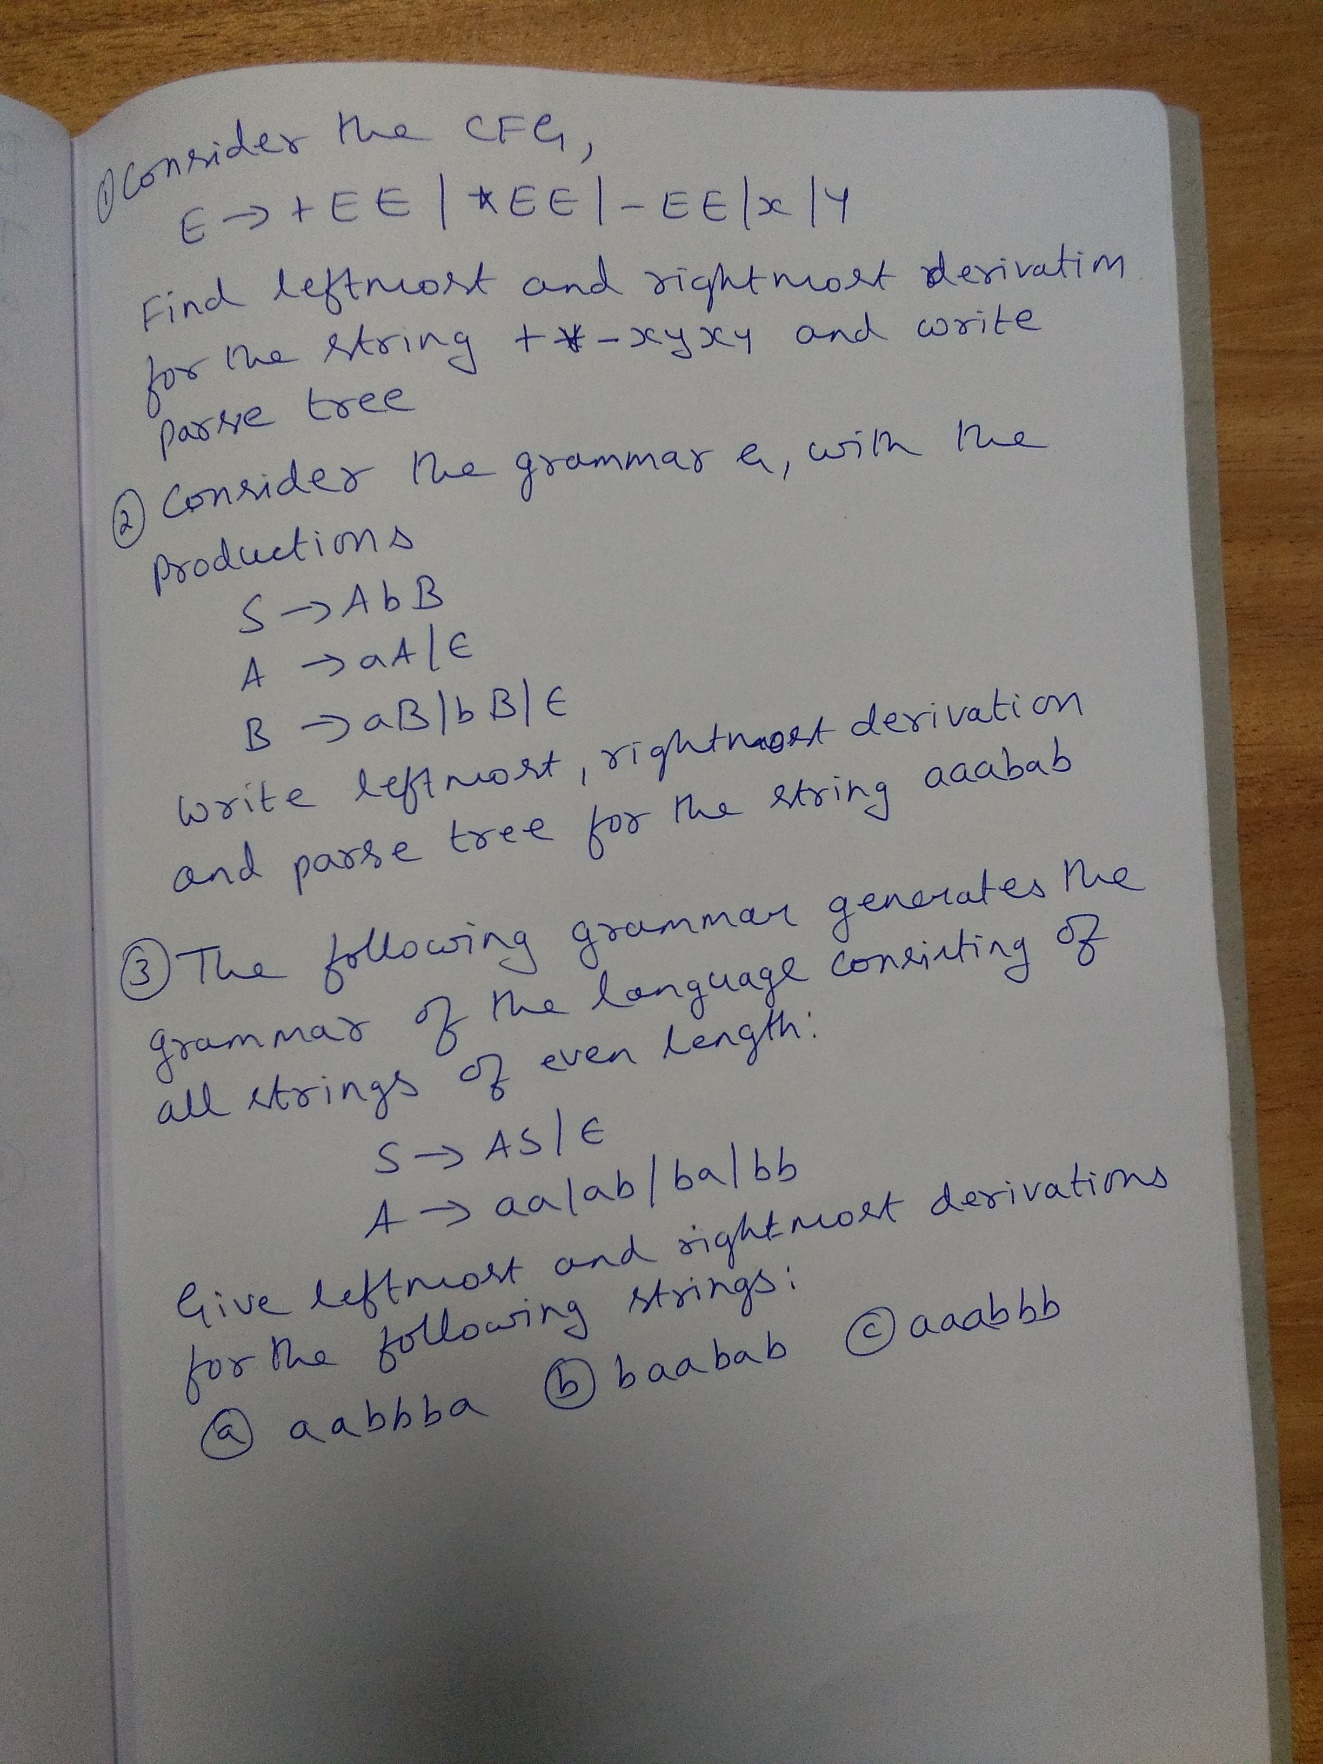 ① Consider the CFG,
E → +EE | *EE | -EE | x | y
Find leftmost and rightmost derivation
for the string +*-xyxy and write
parse tree
② Consider the grammar G, with the
productions
S → AbB
A → aA | ε
B → aB | bB | ε
Write leftmost, rightmost derivation
and parse tree for the string aaabab
③ The following grammar generates the
grammar of the language consisting of
all strings of even length:
S → AS | ε
A → aa | ab | ba | bb
Give leftmost and rightmost derivations
for the following strings:
ⓐ aabbba ⓑ baabab ⓒ aaabbb